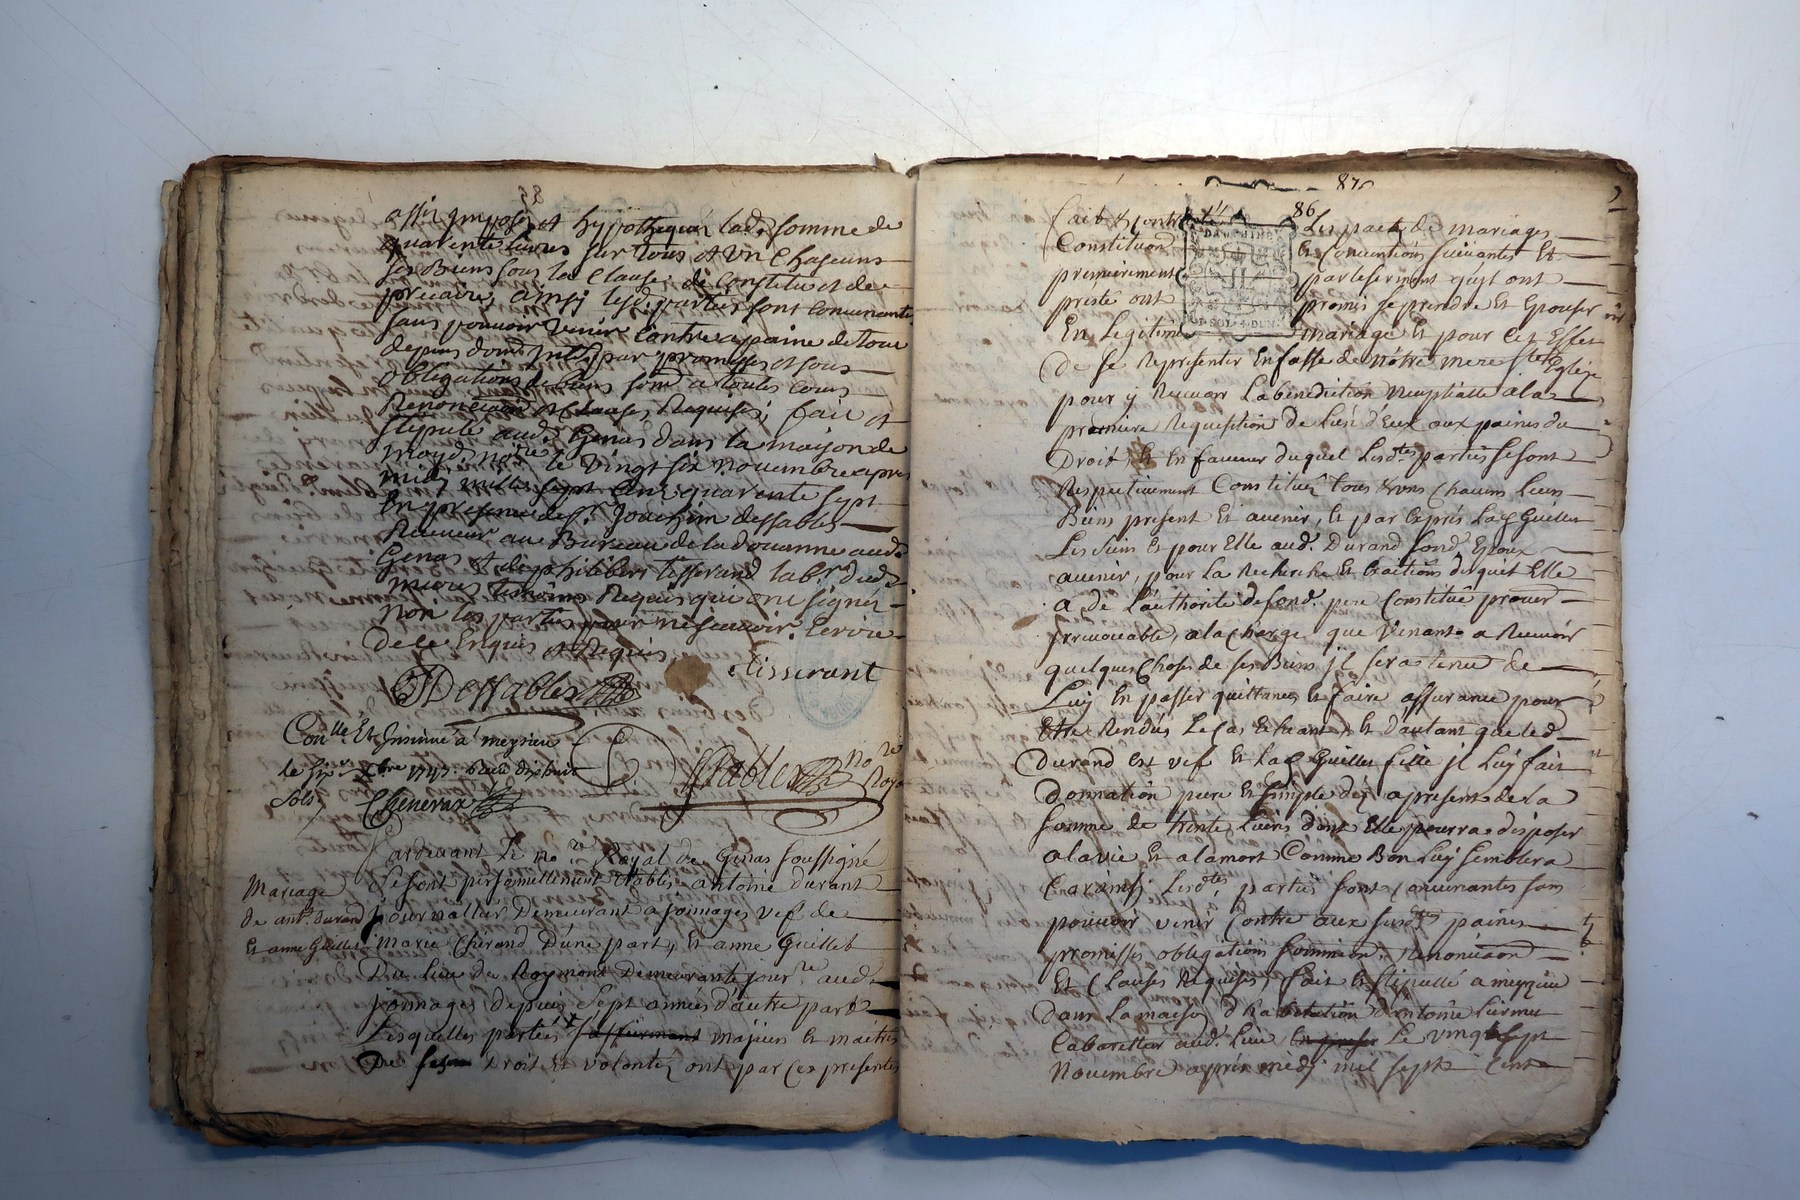 assis imposé et hypothequé lad. somme de
quarente livres sur tous et un chaquns
ses Biens sous la clause de constitut et de
precaire, ainsi lesd. parties sont convenantes
sans pouvoir venir contre apaine de tous
depens dom. par promesses et sous
obligations de biens a toutes cours
Renonciaõn et clauses Requises, fait et
stipulé aud. Genas dans la maison de
moyd. no.re le vingt six novembre apres
midy mille sept cent quarente sept
En presence de s.r Joachim dessables
Receveur au Bureau de la doüanne aud.
Genas et de philibert tisserand lab.r dud.
temoins Requis qui ont signés
non les parties pour ne scavoir Ecrire
de ce Enquis et Requis
JDessables
tisserant
Con.llé Et Insinué a meyzieu
le 10bre 1747. Receu dixhuit
sols
Chenevaz
no.re Roya
Pardevant Le no.re Royal de Genas soussigné
Mariage
De ant. Durand
Et anne Guillet
se sont personnellement Etablis antoine durant
journallier Demeurant a jonnages vef de
marie Cherand D'une part, Et anne Guillet
Du Lieu de Roymond Demeurante jour.re aud.
jonnages depuis Sept années d'autre part
Lesquelles parties majeurs Et maitres
De Droit Et volontez ont par ces presentes
87
86
Fait & Les pacte de mariages
Constitution & Conventions suivantes Et
premierement par leserment quil ont
presté ont promis se prendre Et Epouser
En Legitime mariage Et pour cet Effet
De se Representer En fasse de nôtre mere ste Eglise
pour y Recevoir La benediction Neuptialle a la
premiere Requisition de L'un d'Eux aux peines du
Droit, Et En faveur duquel Lesd.tes parties se sont
Respectivement Constitués tous & uns Chacuns Leurs
Biens present Et avenir, Et par Exprés Lad. Guillet
Les siens Et pour Elle aud. Durand son d. Epoux
avenir, pour La Recherche Et Exactiõn desquels Elle
a de L'authorité de son d. Constitué procur
jrrevocable, a la Charge que Venant a Recevoir
quelques Choses de ses Biens jl sera tenu de
Luy En passer quittance Et faire assurance pour
Etre Rendus Le Cas Echeant, Et Dautant que led.
Durand Est vef Et Lad. Guillet fille jl Luy fait
Donnation pure Et simple dez apresent de La
somme de trente Livres dont Elle pourra disposer
a la vie Et a la mort Comme Bon Luy Semblera
Car ainsy Lesd.tes parties sont Convenantes sans
pouvoir venir Contre aux susd.tes paines
promesses obligations soumission Renonciaõn
Et Clauses Requises, fait Et stipullé a meyzieu
Dans La maison d'habitation d'antoine
Cabarettier aud. Lieu Le vingt sept
Novembre aprés midy mil sept cent